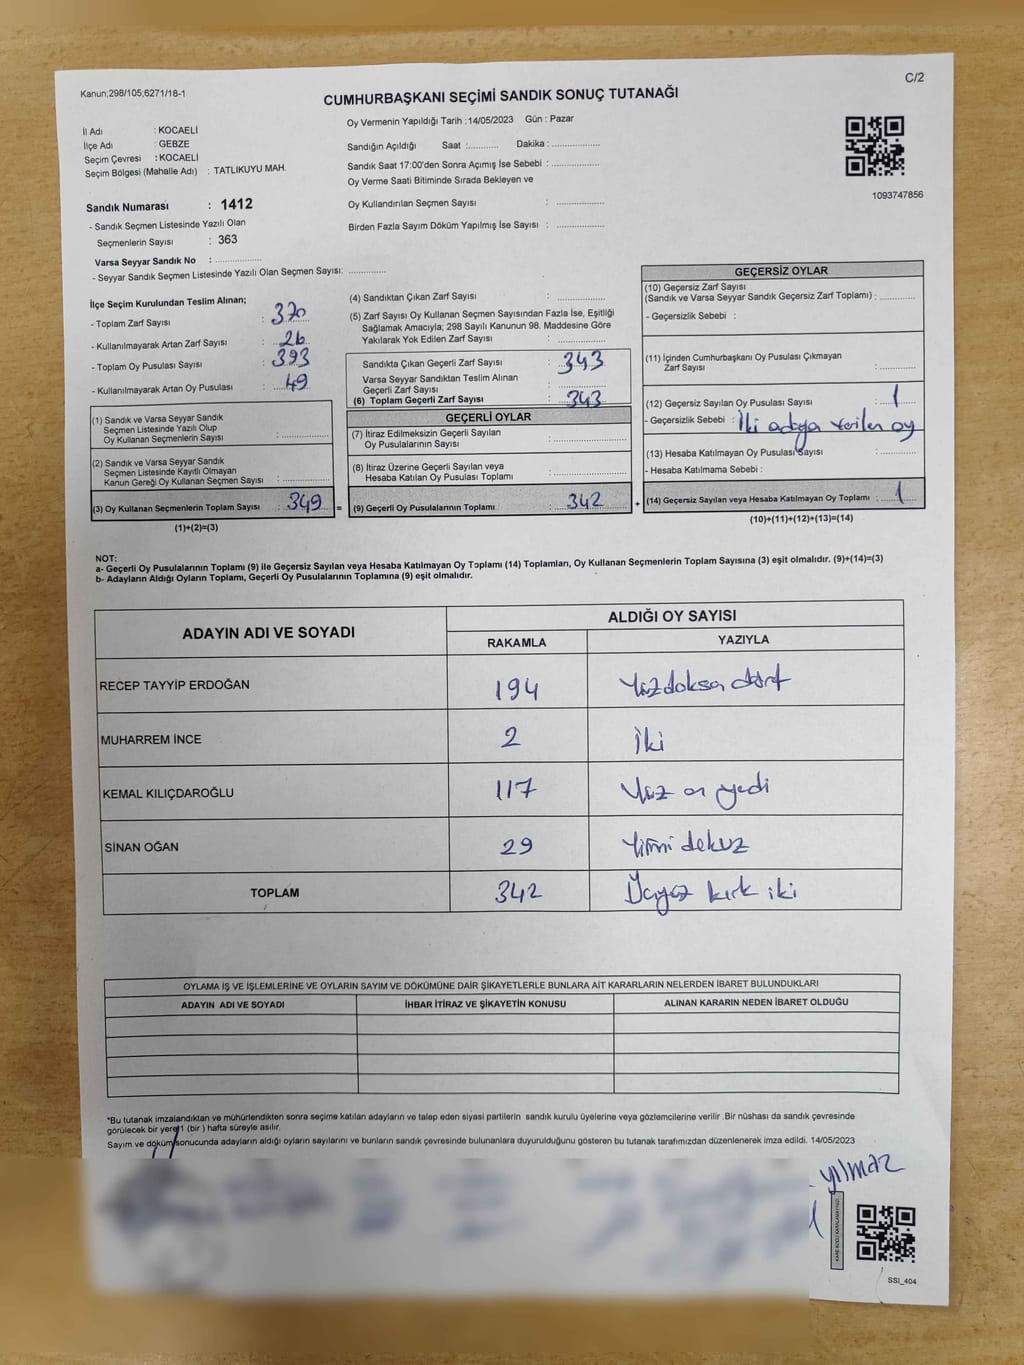 Kanun;298/105;6271/18-1
C/2
CUMHURBAŞKANI SEÇİMİ SANDIK SONUÇ TUTANAĞI
İl Adı : KOCAELİ
İlçe Adı : GEBZE
Seçim Çevresi : KOCAELİ
Seçim Bölgesi (Mahalle Adı) : TATLIKUYU MAH.
Sandık Numarası : 1412
- Sandık Seçmen Listesinde Yazılı Olan
Seçmenlerin Sayısı : 363
Varsa Seyyar Sandık No : ................
- Seyyar Sandık Seçmen Listesinde Yazılı Olan Seçmen Sayısı: ............
Oy Vermenin Yapıldığı Tarih :14/05/2023 Gün : Pazar
Sandığın Açıldığı Saat :.......... Dakika : ................
Sandık Saat 17:00'den Sonra Açımış İse Sebebi : ................
Oy Verme Saati Bitiminde Sırada Bekleyen ve
Oy Kullandırılan Seçmen Sayısı : ................
Birden Fazla Sayım Döküm Yapılmış İse Sayısı : ................
1093747856
İlçe Seçim Kurulundan Teslim Alınan;
- Toplam Zarf Sayısı : 370
- Kullanılmayarak Artan Zarf Sayısı : 26
- Toplam Oy Pusulası Sayısı : 393
- Kullanılmayarak Artan Oy Pusulası : 49
(1) Sandık ve Varsa Seyyar Sandık
Seçmen Listesinde Yazılı Olup
Oy Kullanan Seçmenlerin Sayısı : ................
(2) Sandık ve Varsa Seyyar Sandık
Seçmen Listesinde Kayıtlı Olmayan
Kanun Gereği Oy Kullanan Seçmen Sayısı : ................
(3) Oy Kullanan Seçmenlerin Toplam Sayısı : 349 =
(1)+(2)=(3)
(4) Sandıktan Çıkan Zarf Sayısı : ................
(5) Zarf Sayısı Oy Kullanan Seçmen Sayısından Fazla İse, Eşitliği
Sağlamak Amacıyla; 298 Sayılı Kanunun 98. Maddesine Göre
Yakılarak Yok Edilen Zarf Sayısı : ................
Sandıkta Çıkan Geçerli Zarf Sayısı : 343
Varsa Seyyar Sandıktan Teslim Alınan
Geçerli Zarf Sayısı : ................
(6) Toplam Geçerli Zarf Sayısı : 343
GEÇERLİ OYLAR
(7) İtiraz Edilmeksizin Geçerli Sayılan
Oy Pusulalarının Sayısı : ................
(8) İtiraz Üzerine Geçerli Sayılan veya
Hesaba Katılan Oy Pusulası Toplamı : ................
(9) Geçerli Oy Pusulalarının Toplamı : 342 +
GEÇERSİZ OYLAR
(10) Geçersiz Zarf Sayısı
(Sandık ve Varsa Seyyar Sandık Geçersiz Zarf Toplamı) : ............
- Geçersizlik Sebebi :
(11) İçinden Cumhurbaşkanı Oy Pusulası Çıkmayan
Zarf Sayısı : ............
(12) Geçersiz Sayılan Oy Pusulası Sayısı : 1
- Geçersizlik Sebebi : İki adaya verilen oy
(13) Hesaba Katılmayan Oy Pusulası Sayısı : ............
- Hesaba Katılmama Sebebi :
(14) Geçersiz Sayılan veya Hesaba Katılmayan Oy Toplamı : 1
(10)+(11)+(12)+(13)=(14)
NOT:
a- Geçerli Oy Pusulalarının Toplamı (9) ile Geçersiz Sayılan veya Hesaba Katılmayan Oy Toplamı (14) Toplamları, Oy Kullanan Seçmenlerin Toplam Sayısına (3) eşit olmalıdır. (9)+(14)=(3)
b- Adayların Aldığı Oyların Toplamı, Geçerli Oy Pusulalarının Toplamına (9) eşit olmalıdır.
ADAYIN ADI VE SOYADI
ALDIĞI OY SAYISI
RAKAMLA YAZIYLA
RECEP TAYYİP ERDOĞAN 194 Yüzdoksan dört
MUHARREM İNCE 2 İki
KEMAL KILIÇDAROĞLU 117 Yüz on yedi
SİNAN OĞAN 29 Yirmi dokuz
TOPLAM 342 Üçyüz kırk iki
OYLAMA İŞ VE İŞLEMLERİNE VE OYLARIN SAYIM VE DÖKÜMÜNE DAİR ŞİKAYETLERLE BUNLARA AİT KARARLARIN NELERDEN İBARET BULUNDUKLARI
ADAYIN ADI VE SOYADI İHBAR İTİRAZ VE ŞİKAYETİN KONUSU ALINAN KARARIN NEDEN İBARET OLDUĞU
*Bu tutanak imzalandıktan ve mühürlendikten sonra seçime katılan adayların ve talep eden siyasi partilerin sandık kurulu üyelerine veya gözlemcilerine verilir .Bir nüshası da sandık çevresinde
görülecek bir yere 1 (bir ) hafta süreyle asılır.
Sayım ve döküm sonucunda adayların aldığı oyların sayılarını ve bunların sandık çevresinde bulunanlara duyurulduğunu gösteren bu tutanak tarafımızdan düzenlenerek imza edildi. 14/05/2023
yılmaz
SSI_404